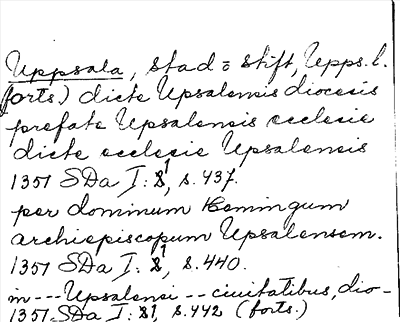 Uppsala, stad o stift, Upps. l.
(forts.) dicte Upsalensis diocesis
prefate Upsalensis ecclesie
dicte ecclesie Upsalensis
1351 SDa I: 81, s. 437.
per dominum Hemingum
archiepiscopum Upsalensem.
1351 SDa I: 81, s. 440.
in --- Upsalensi -- ciuitatibus, dio-
1351 SDa I: 81, s. 442 (forts.)